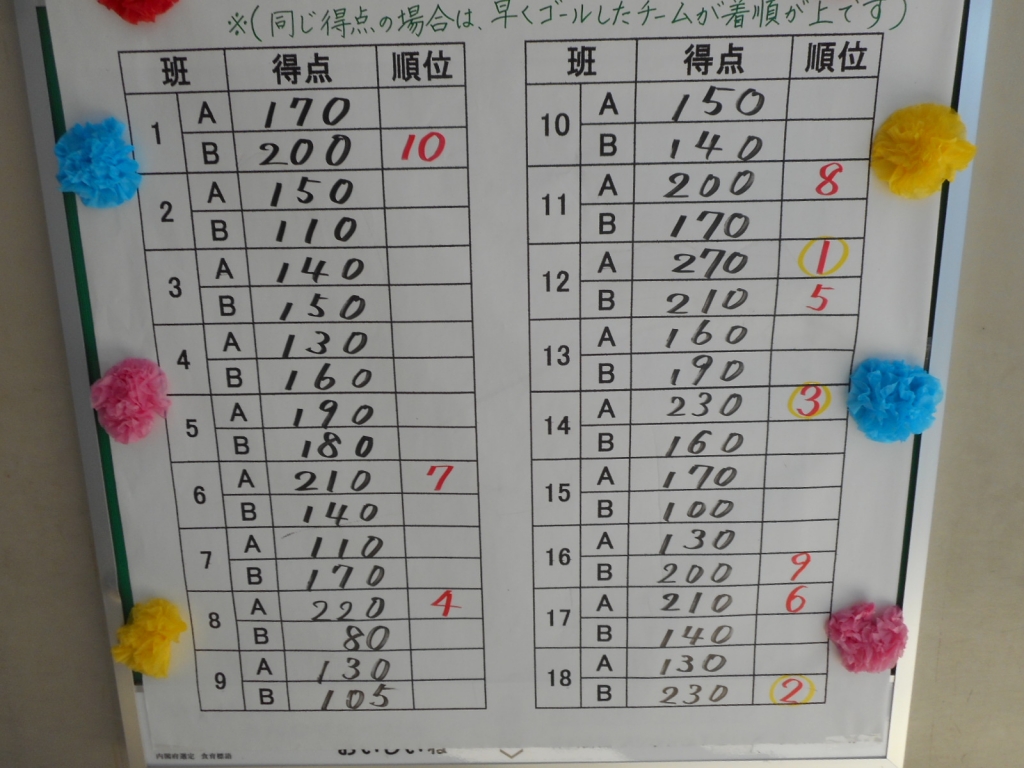 ※(同じ得点の場合は、早くゴールしたチームが着順が上です)
班 得点 順位
1 A 170
B 200 10
2 A 150
B 110
3 A 140
B 150
4 A 130
B 160
5 A 190
B 180
6 A 210 7
B 140
7 A 110
B 170
8 A 220 4
B 80
9 A 130
B 105
班 得点 順位
10 A 150
B 140
11 A 200 8
B 170
12 A 270 1
B 210 5
13 A 160
B 190
14 A 230 3
B 160
15 A 170
B 100
16 A 130
B 200 9
17 A 210 6
B 140
18 A 130
B 230 2
内閣府選定 食育標語